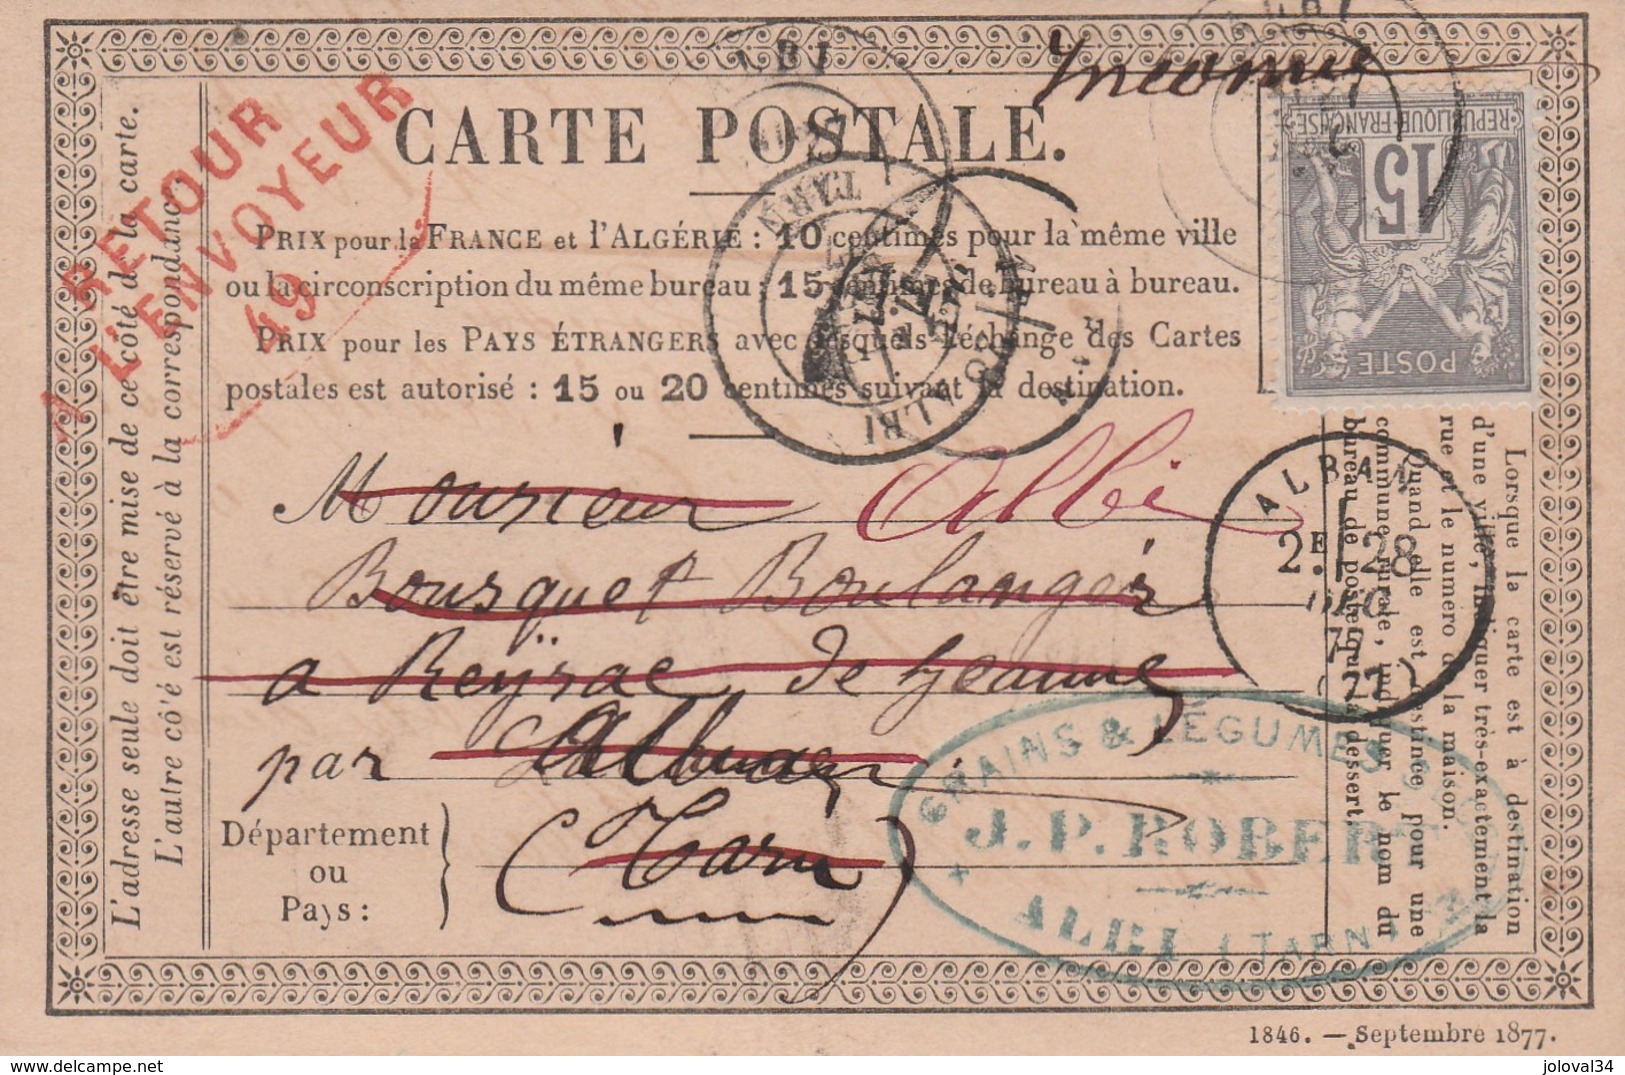 Inconnu
CARTE POSTALE.
RETOUR
A L'ENVOYEUR
49
PRIX pour la FRANCE et l'ALGÉRIE : 10 centimes pour la même ville
ou la circonscription du même bureau : 15 centimes de bureau à bureau.
PRIX pour les PAYS ÉTRANGERS avec lesquels l'échange des Cartes
postales est autorisé : 15 ou 20 centimes suivant la destination.
L'adresse seule doit être mise de ce côté de la carte.
L'autre côté est réservé à la correspondance.
REPUBLIQUE FRANÇAISE
15
POSTE
ALBI
TARN
ALBI
Lorsque la carte est à destination
d'une ville, indiquer très-exactement la
rue et le numéro de la maison.
Quand elle est destinée pour une
commune rurale, indiquer le nom du
bureau de poste qui la dessert.
ALBAN
2E 28
DEC
77
(77)
Monsieur Albi
Bousquet Boulanger
a Reyssac de Jeanne
par Alban
Département
ou
Pays :
Tarn
GRAINS & LÉGUMES SECS
J. P. ROBERT
ALBI (TARN)
1846. — Septembre 1877.
joloval34
delcampe.net